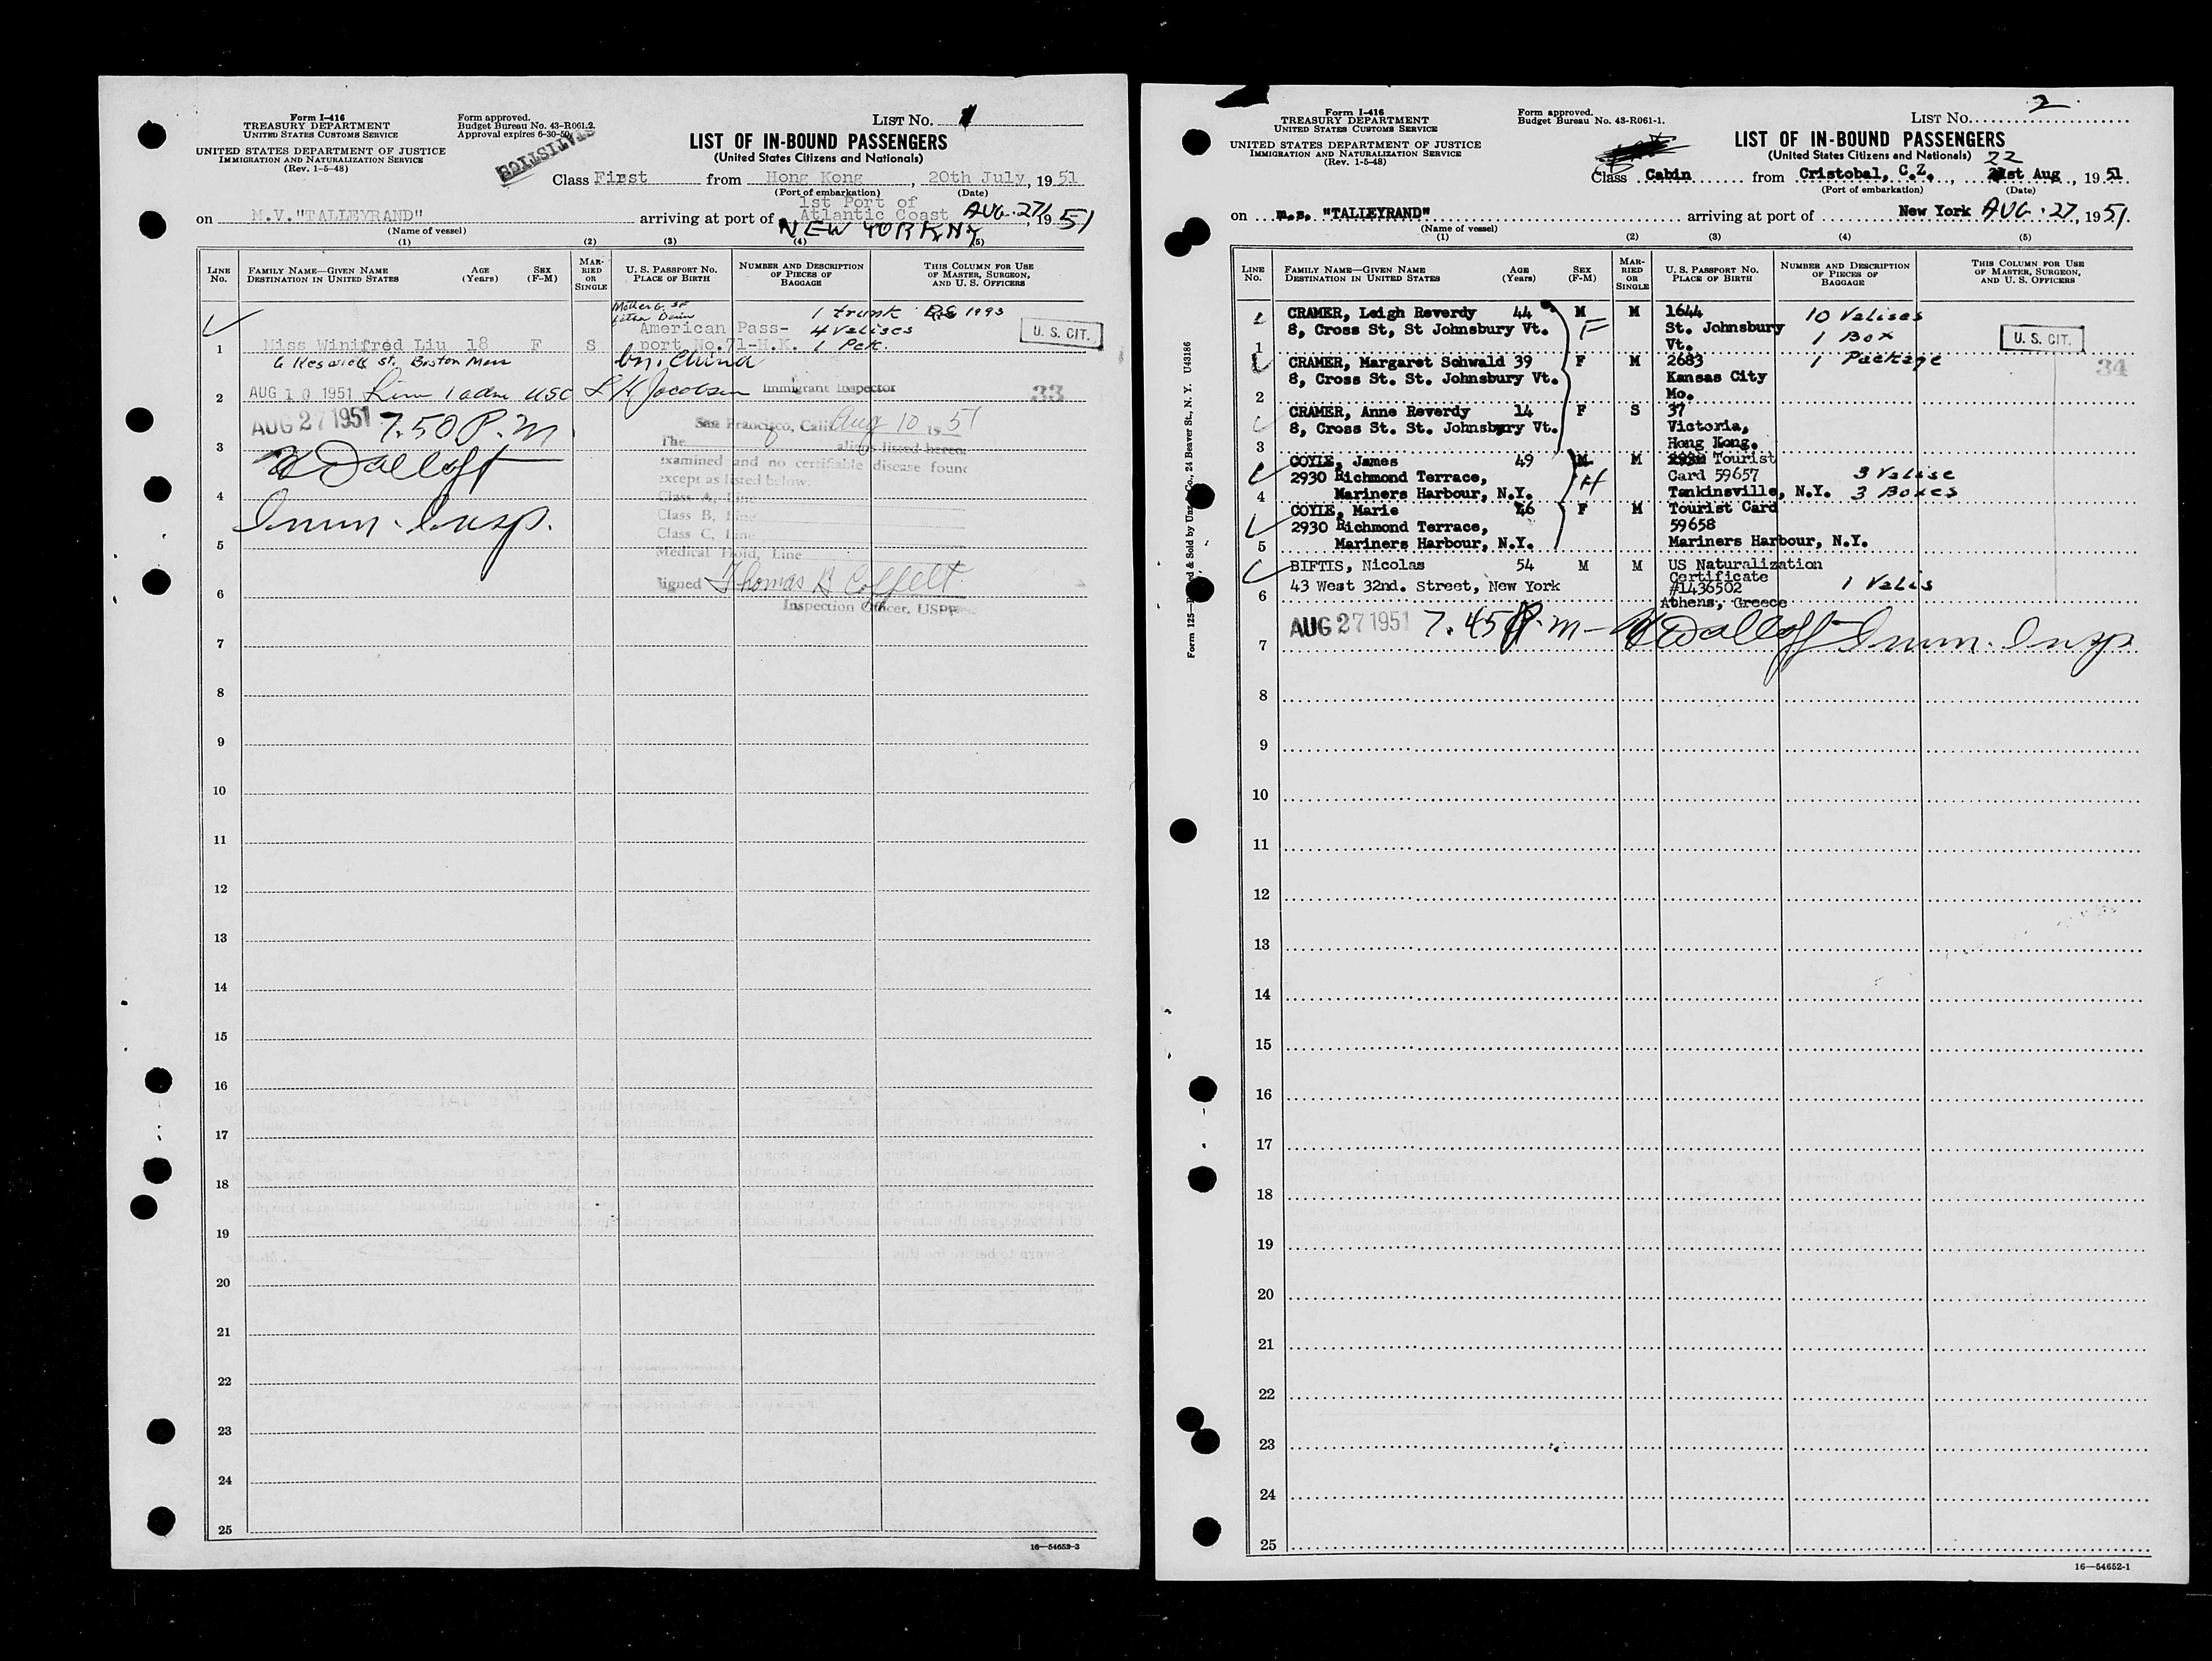 Form I-416
TREASURY DEPARTMENT
UNITED STATES CUSTOMS SERVICE
UNITED STATES DEPARTMENT OF JUSTICE
IMMIGRATION AND NATURALIZATION SERVICE
(Rev. 1-5-48)
Form approved.
Budget Bureau No. 43-R061.2.
Approval expires 6-30-50.
STATISTICS
LIST No. 1
LIST OF IN-BOUND PASSENGERS
(United States Citizens and Nationals)
Class First from Hong Kong, 20th July, 1951
(Port of embarkation) (Date)
1st Port of
on M.V."TALLEYRAND" arriving at port of Atlantic Coast AUG. 27, 1951
NEW YORK, NY
(Name of vessel)
(1) (2) (3) (4) (5)
LINE No. FAMILY NAME—GIVEN NAME DESTINATION IN UNITED STATES AGE (Years) SEX (F-M) MARRIED OR SINGLE U. S. PASSPORT No. PLACE OF BIRTH NUMBER AND DESCRIPTION OF PIECES OF BAGGAGE THIS COLUMN FOR USE OF MASTER, SURGEON, AND U. S. OFFICERS
1 trunk 1993
American Pass- 4 Valises U. S. CIT.
1 Miss Winifred Liu 18 F S port No.71-H.K. 1 Pck.
6 Keswick St, Boston Mass bn; China
2 AUG 10 1951 Line 1 adm USC L K Jacobsen Immigrant Inspector 33
AUG 27 1951 7.50 P.M
San Francisco, Calif Aug 10 1951
3 The aliens listed hereon
examined and no certifiable disease found
except as listed below.
4 Class A, Line
Imm. Insp.
Class B, Line
Class C, Line
5 Medical Hold, Line
Signed Thomas B Coffelt
6 Inspection Officer, USPHS
7
8
9
10
11
12
13
14
15
16
17
18
19
20
21
22
23
24
25
16—54652-3
Form I-416
TREASURY DEPARTMENT
UNITED STATES CUSTOMS SERVICE
UNITED STATES DEPARTMENT OF JUSTICE
IMMIGRATION AND NATURALIZATION SERVICE
(Rev. 1-5-48)
Form approved.
Budget Bureau No. 43-R061-1.
LIST No. 2
LIST OF IN-BOUND PASSENGERS
(United States Citizens and Nationals)
22
Class Cabin from Cristobal, C.Z., 21st Aug, 1951
(Port of embarkation) (Date)
on m.s. "TALLEYRAND" arriving at port of New York AUG. 27, 1951.
(Name of vessel)
(1) (2) (3) (4) (5)
LINE No. FAMILY NAME—GIVEN NAME DESTINATION IN UNITED STATES AGE (Years) SEX (F-M) MARRIED OR SINGLE U. S. PASSPORT No. PLACE OF BIRTH NUMBER AND DESCRIPTION OF PIECES OF BAGGAGE THIS COLUMN FOR USE OF MASTER, SURGEON, AND U. S. OFFICERS
CRAMER, Leigh Reverdy 44 M M 1644 10 Valises
8, Cross St, St Johnsbury Vt. St. Johnsbury 1 Box U. S. CIT.
1 Vt.
CRAMER, Margaret Schwald 39 F M 2683 1 Package
8, Cross St. St. Johnsbury Vt. Kansas City 34
2 Mo.
CRAMER, Anne Reverdy 14 F S 37
8, Cross St. St. Johnsbury Vt. Victoria,
3 Hong Kong.
COYLE, James 49 M M Tourist
2930 Richmond Terrace, Card 59657 3 Valise
4 Mariners Harbour, N.Y. Tankinsville, N.Y. 3 Boxes
COYLE, Marie 46 F M Tourist Card
2930 Richmond Terrace, 59658
5 Mariners Harbour, N.Y. Mariners Harbour, N.Y.
BIFTIS, Nicolas 54 M M US Naturalization
43 West 32nd. Street, New York Certificate
6 #1436502 1 Valis
Athens, Greece
AUG 27 1951 7.45 P.m Imm. Insp
7
8
9
10
11
12
13
14
15
16
17
18
19
20
21
22
23
24
25
16—54652-1